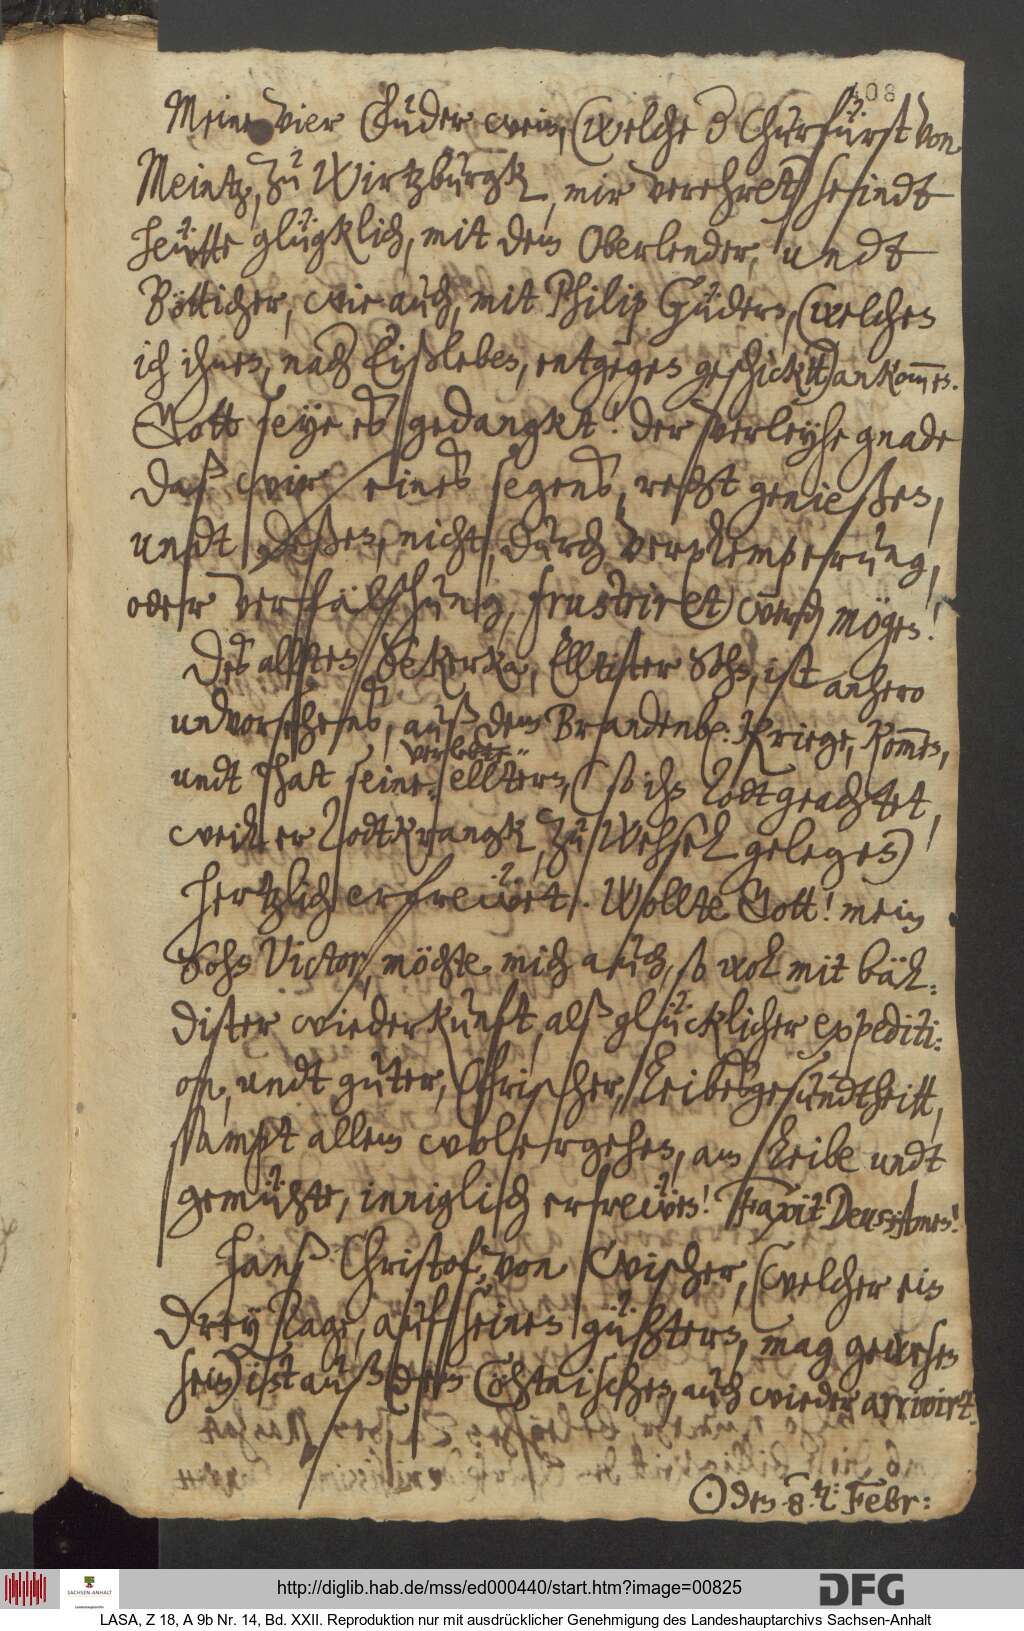 408
Meine vier Fuder wein, (welche d Churfürst von
Meintz, zu Wirtzburgk, mir verehret) seindt
heütte glügklich, mit dem Oberlender, undt
Bötticher, wie auch, mit Philip Güdern, (welchen
ich ihnen, nach Eißleben, entgegen geschicktt) ankom̅en.
Gott seye es gedangkt! der verleyhe gnade
daß wir seines segens, recht genießen,
undt deßen, nicht, durch verplemperung,
oder verfälschung, frustriret werden mögen!
Des allten Sekerka, Elltister Sohn, ist anhero
unvorsehens, auß dem Brandenb: Kriege, kom̅en,
undt hat seine verlebte ellttern, (so ihn Todt geachtet,
weil er Todtkrangk, zu Wehsel gelegen)
hertzlich erfreüet. Wollte Gott! mein
Sohn Victor, möchte mich auch, so wol mit bäl=
distter wiederkunft, alß glücklicher expediti=
on, undt guter, frischer, Leibesgesundtheitt,
sampt allem wolergehen, am Leibe undt
gemühte, inniglich erfreüen! Faxit Deus! Amen!
Hanß Christof, von Wischer, (welcher ein
drey Tage, auf seinen gühtern, mag gewesen
sein) ist auß dem Cöhtnischen, auch wieder arrivirt.
☉ den 8. ten: Febr:
http://diglib.hab.de/mss/ed000440/start.htm?image=00825
SACHSEN-ANHALT
DFG
LASA, Z 18, A 9b Nr. 14, Bd. XXII. Reproduktion nur mit ausdrücklicher Genehmigung des Landeshauptarchivs Sachsen-Anhalt